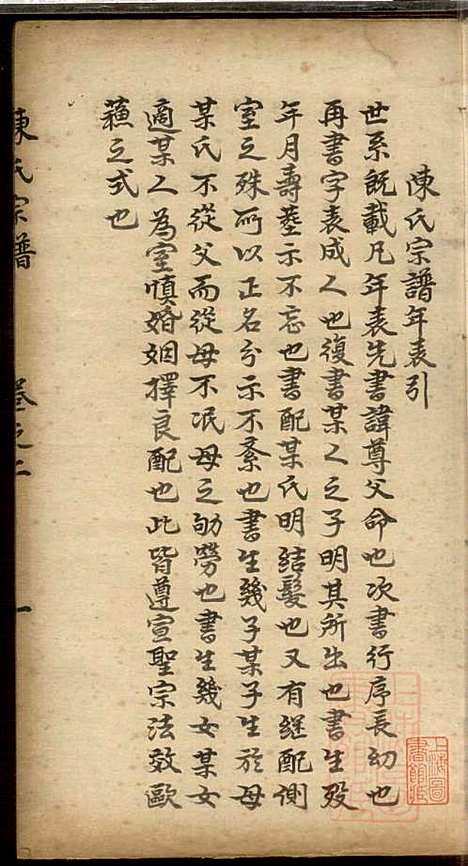 陳氏宗譜年表引
世系既載凡年表先書諱尊父命也次書行序長幼也
再書字表成人也復書某人之子明其所出也書生殁
年月壽塋示不忘也書配某氏明結髮也又有继配側
室之殊所以正名分示不紊也書生幾子某子生於母
某氏不從父而從母不泯母之劬勞也書生幾女某女
適某人為室慎婚姻擇良配也此皆遵宣聖宗法效歐
蘓之式也
陳氏宗譜
卷之二
一
上海圖
書館藏